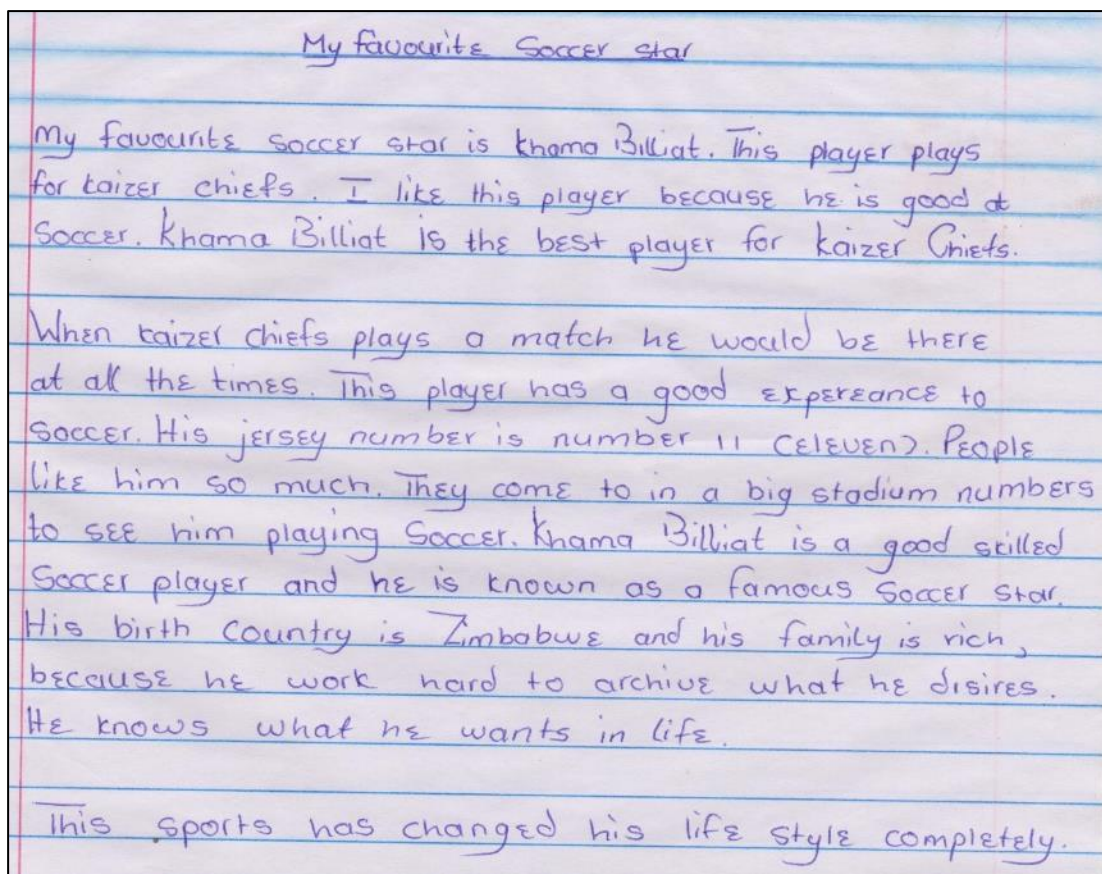 My favourite Soccer star
My favourite soccer star is Khama Billiat. This player plays
for kaizer chiefs. I like this player because he is good at
Soccer. Khama Billiat is the best player for kaizer Chiefs.
When kaizer chiefs plays a match he would be there
at all the times. This player has a good expereance to
Soccer. His jersey number is number 11 (eleven). People
like him so much. They come to in a big stadium numbers
to see him playing Soccer. Khama Billiat is a good skilled
Soccer player and he is known as a famous Soccer star.
His birth country is Zimbabwe and his family is rich,
because he work hard to archive what he disires.
He knows what he wants in life.
This sports has changed his life style completely.